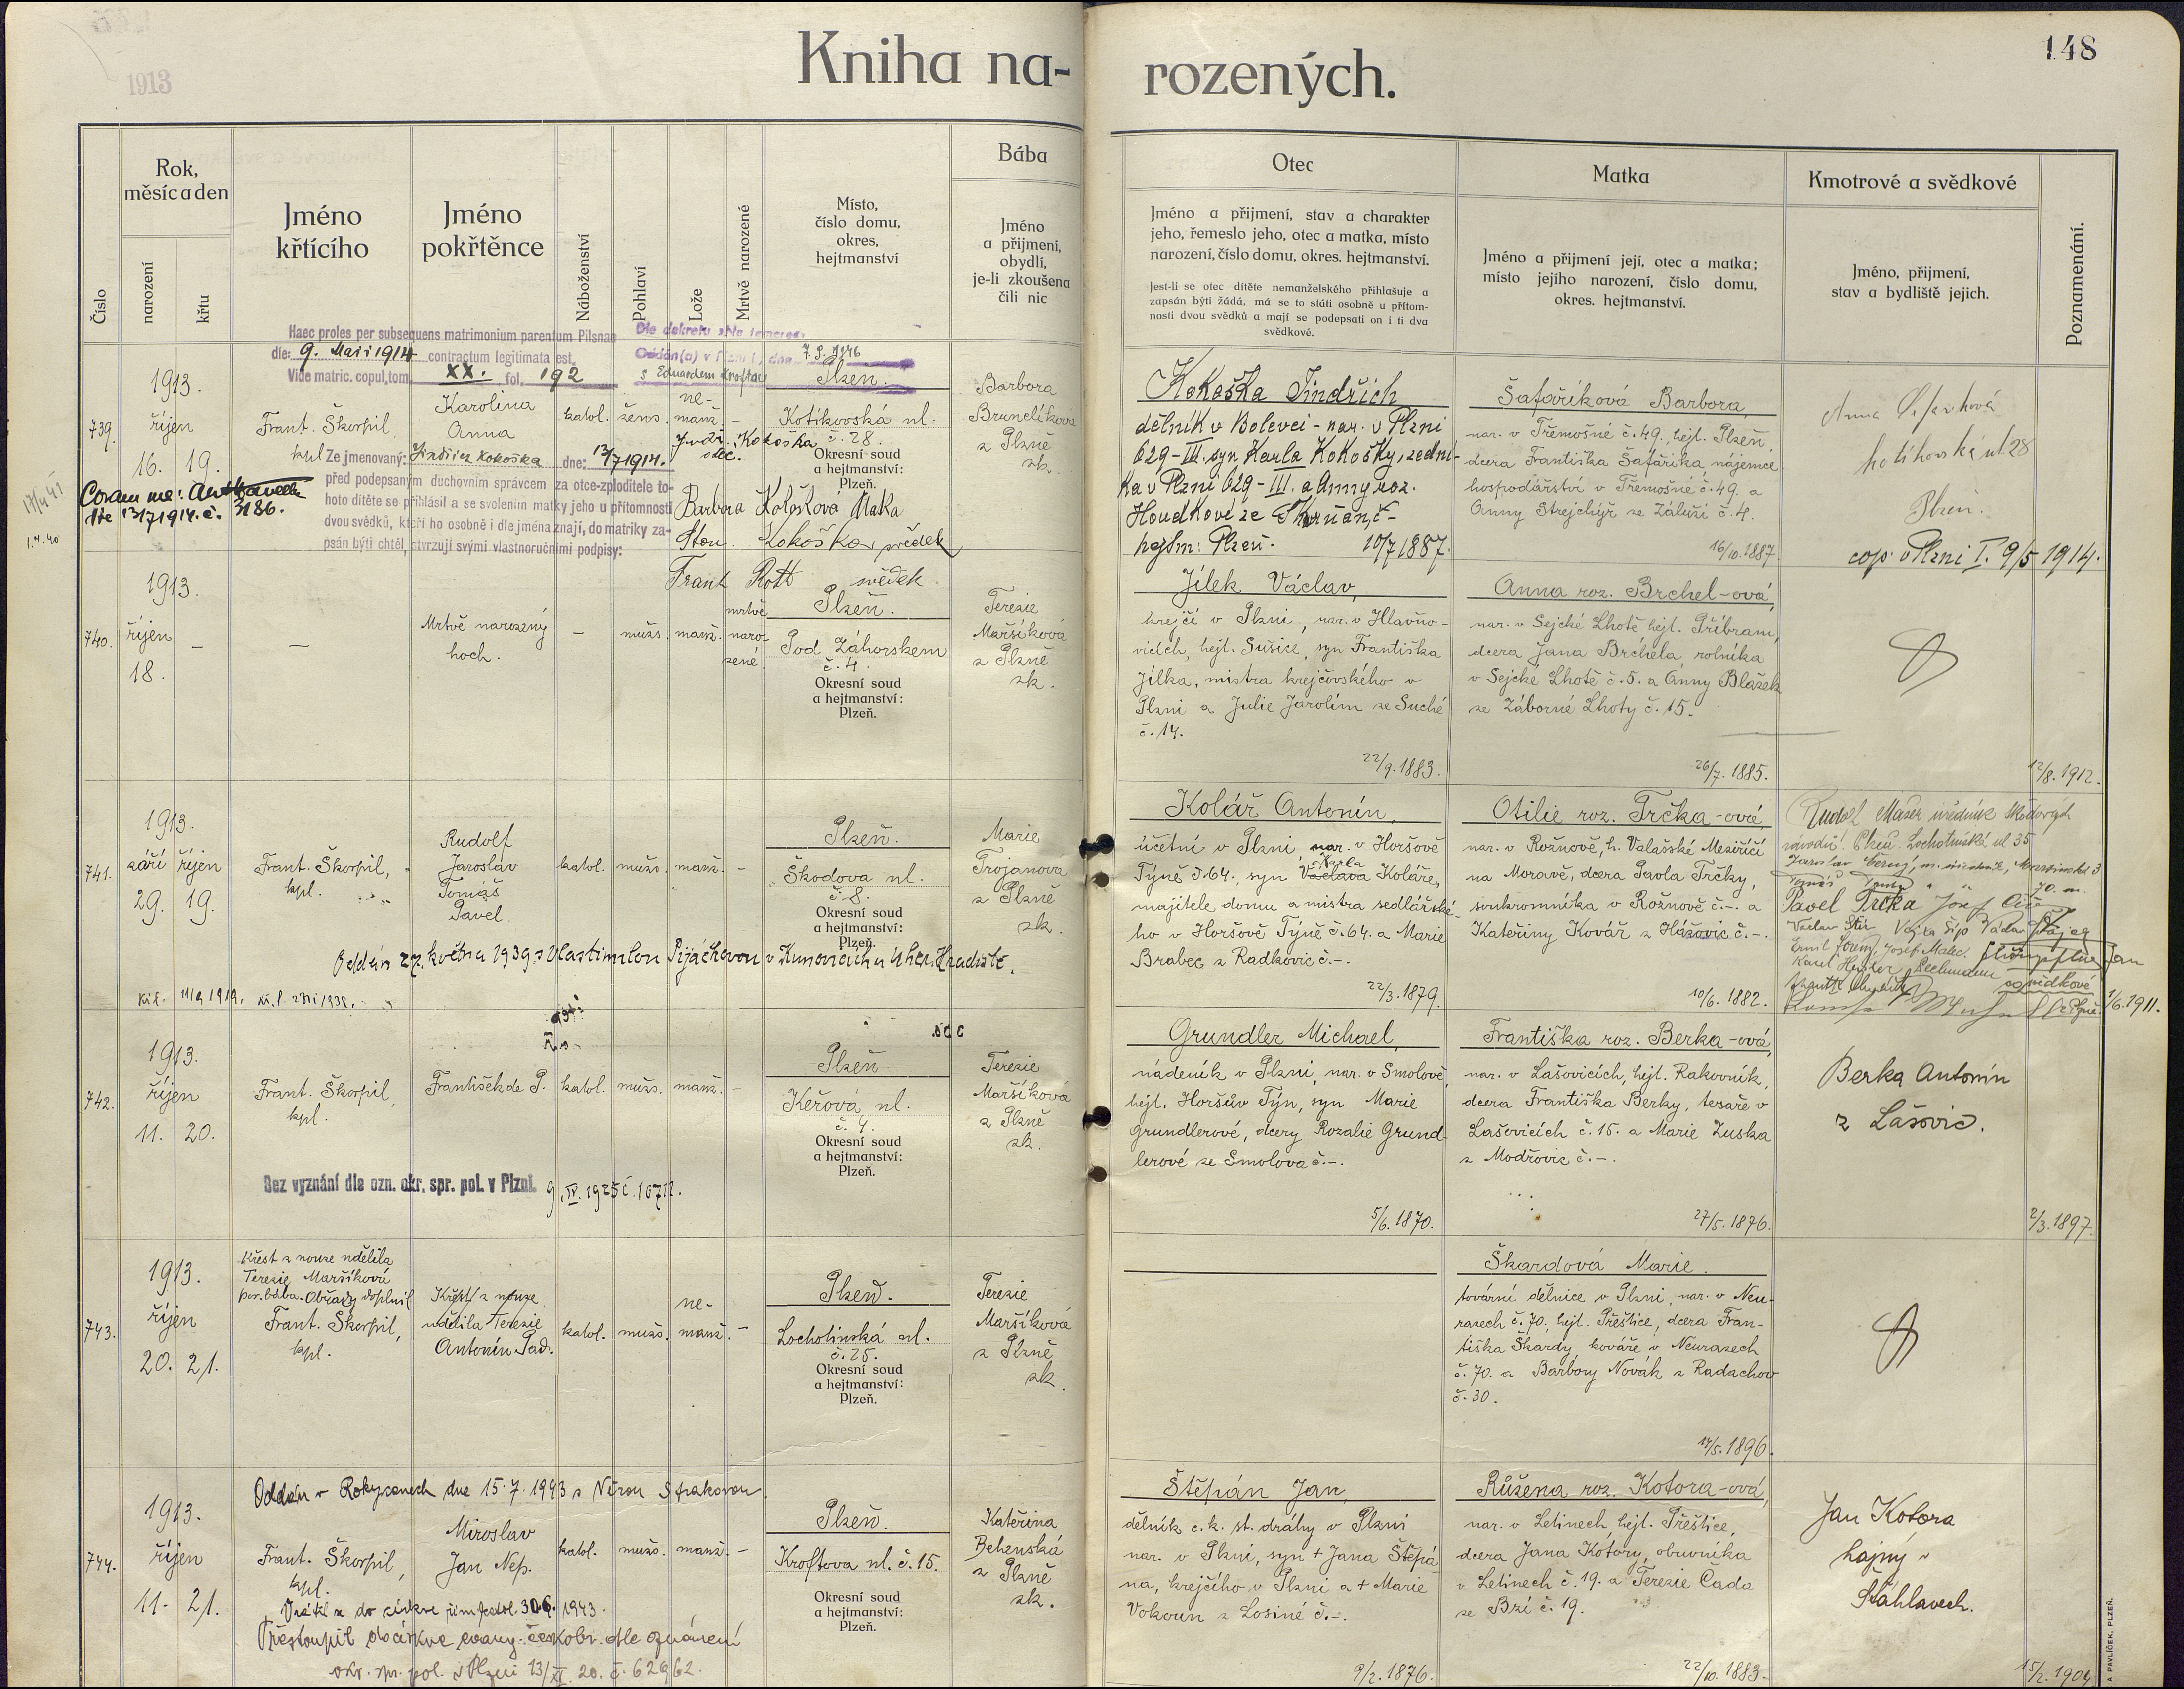 1913
Kniha na-
rozených.
148
Číslo
Rok,
měsíc a den
narození
křtu
Jméno
křtícího
Jméno
pokřtěnce
Náboženství
Pohlaví
Lože
Mrtvě narozené
Místo,
číslo domu,
okres,
hejtmanství
Bába
Jméno
a přijmení,
obydlí,
je-li zkoušena
čili nic
Otec
Jméno a přijmení, stav a charakter
jeho, řemeslo jeho, otec a matka, místo
narození, číslo domu, okres. hejtmanství.
Jest-li se otec dítěte nemanželského přihlašuje a
zapsán býti žádá, má se to státi osobně u přítom-
nosti dvou svědků a mají se podepsati on i ti dva
svědkové.
Matka
Jméno a přijmení její, otec a matka;
místo jejího narození, číslo domu,
okres. hejtmanství.
Kmotrové a svědkové
Jméno, přijmení,
stav a bydliště jejich.
Poznamenání.
Haec proles per subsequens matrimonium parentum Pilsnae
dle: 9. Maii 1914 contractum legitimata est.
Vide matric. copul. tom. XX. fol. 192
Dle dekretu „Ne temere“
Oddán(a) v Plzni I., dne 7. 9. 1946
s Eduardem Kroftou
739.
1913.
říjen
16. 19.
Frant. Škorpil,
kpl.
Karolina
Anna
katol.
žens.
ne-
manž.
–
Plzeň.
Kotíkovská ul.
č. 28.
Okresní soud
a hejtmanství:
Plzeň.
Barbora
Brunclíková
z Plzně
zk.
Jindř. Kokoška
otec.
Ze jmenovaný: Jindřich Kokoška dne: 13/7 1914.
před podepsaným duchovním správcem za otce-zploditele to-
hoto dítěte se přihlásil a se svolením matky jeho u přítomnosti
dvou svědků, kteří ho osobně i dle jména znají, do matriky za-
psán býti chtěl, stvrzují svými vlastnoručními podpisy:
Coram me:
dto 13/7 1914. č. 3186.
Barbora Kokošková Matka
Kokoška svědek
Frant Rott svědek
Kokoška Jindřich
dělník v Bolevci - nar. v Plzni
629-III. syn Karla Kokošky, zední-
ka v Plzni 629-III. a Anny roz.
Houdkové ze
hejtm: Plzeň. 10/7 1887.
Šafaříková Barbora
nar. v Třemošné č. 49., hejt. Plzeň
dcera Františka Šafaříka, nájemce
hospodářství v Třemošné č. 49. a
Anny Strejchýř ze Záluží č. 4.
16/10. 1887.
Anna
kotíkovská ul 28
Plzeň.
cop. v Plzni I. 9/5 1914.
740.
1913.
říjen
18.
–
–
Mrtvě narozený
hoch.
–
mužs.
manž.
mrtvě
naro-
zené
Plzeň.
Pod Záhorskem
č. 4.
Okresní soud
a hejtmanství:
Plzeň.
Terezie
Maršíková
z Plzně
zk.
Jílek Václav,
krejčí v Plzni, nar. v Hlavňo-
vicích, hejt. Sušice, syn Františka
Jílka, mistra krejčovského v
Plzni a Julie Jarolím ze Suché
č. 14.
22/9. 1883.
Anna roz. Brchel-ová,
nar. v Sejcké Lhotě hejt. Příbram,
dcera Jana Brchela, rolníka
v Sejcké Lhotě č. 5. a Anny Blažek
ze Záborné Lhoty č. 15.
26/7. 1885.
12/8. 1912.
741.
1913.
září říjen
29. 19.
Frant. Škorpil,
kpl.
Rudolf
Jaroslav
Tomáš
Pavel.
katol.
mužs.
manž.
–
Plzeň.
Škodova ul.
č. 8.
Okresní soud
a hejtmanství:
Plzeň.
Marie
Trojanová
z Plzně
zk.
Oddán 27. května 1939 s Vlastimilou Pijáčkovou v Kunovicích u Uher. Hradiště.
Kolář Antonín,
účetní v Plzni, nar. v Horšově
Týně č. 64., syn Václava Karla Koláře,
majitele domu a mistra sedlářské-
ho v Horšově Týně č. 64. a Marie
Brabec z Radkovic č. –.
22/3. 1879.
Otilie roz. Trčka-ová,
nar. v Rožnově, h. Valašské Meziříčí
na Moravě, dcera Pavla Trčky,
soukromníka v Rožnově č. –. a
Kateřiny Kovář z Hážovic č. –.
10/6. 1882.
Rudolf Maser úředník Škodových
závodů. Plzeň. Lochotínská ul 35
Pavel Trčka Josef
Josef Malec.
svědkové
1/6. 1911.
742.
1913.
říjen
11. 20.
Frant. Škorpil,
kpl.
František de P.
katol.
mužs.
manž.
–
Plzeň.
Keřová ul.
č. 4.
Okresní soud
a hejtmanství:
Plzeň.
Terezie
Maršíková
z Plzně
zk.
Bez vyznání dle ozn. okr. spr. pol. v Plzni. 9. IV. 1925 č. 16712.
Grundler Michael,
nádeník v Plzni, nar. v Smolově,
hejt. Horšův Týn, syn Marie
Grundlerové, dcery Rozalie Grund-
lerové ze Smolova č. –.
5/6. 1870.
Františka roz. Berka-ová,
nar. v Lašovicích, hejt. Rakovník,
dcera Františka Berky, tesaře v
Lašovicích č. 15. a Marie Zuska
z Modřovic č. –.
27/5. 1876.
Berka Antonín
z Lašovic.
2/3. 1897.
743.
1913.
říjen
20. 21.
Křest z nouze udělila
Terezie Maršíková
por. bába. Obřady doplnil
Frant. Škorpil,
kpl.
Křest z nouze
udělila Terezie
Antonín Pad.
katol.
mužs.
ne-
manž.
–
Plzeň.
Lochotínská ul.
č. 25.
Okresní soud
a hejtmanství:
Plzeň.
Terezie
Maršíková
z Plzně
zk.
Škardová Marie.
tovární dělnice v Plzni, nar. v Neu-
razech č. 70., hejt. Přeštice, dcera Fran-
tiška Škardy, kováře v Neurazech
č. 70. a Barbory Novák z Radachov
č. 30.
17/5. 1896.
Oddán v Rokycanech dne 15. 7. 1943 s Věrou Strakovou
744.
1913.
říjen
11. 21.
Frant. Škorpil,
kpl.
Miroslav
Jan Nep.
katol.
mužs.
manž.
–
Plzeň.
Kroftova ul. č. 15.
Okresní soud
a hejtmanství:
Plzeň.
Kateřina
Behenská
z Plzně
zk.
Vrátil se do církve řím. katol. 30. 6. 1943.
Přestoupil do církve evang. českobr. dle oznámení
okr. spr. pol. v Plzni 13/XI. 20. č. 62962.
Štěpán Jan,
dělník c. k. st. dráhy v Plzni
nar. v Plzni, syn + Jana Štěpá-
na, krejčího v Plzni a + Marie
Vokoun z Losiné č. –.
9/2. 1876.
Růžena roz. Kotora-ová,
nar. v Letinech, hejt. Přeštice,
dcera Jana Kotory, obuvníka
v Letinech č. 19. a Terezie Čada
ze Brzí č. 19.
22/10. 1883.
Jan Kotora
hajný v
Šťáhlavech.
15/2. 1904
A PAVLÍČEK, PLZEŇ.